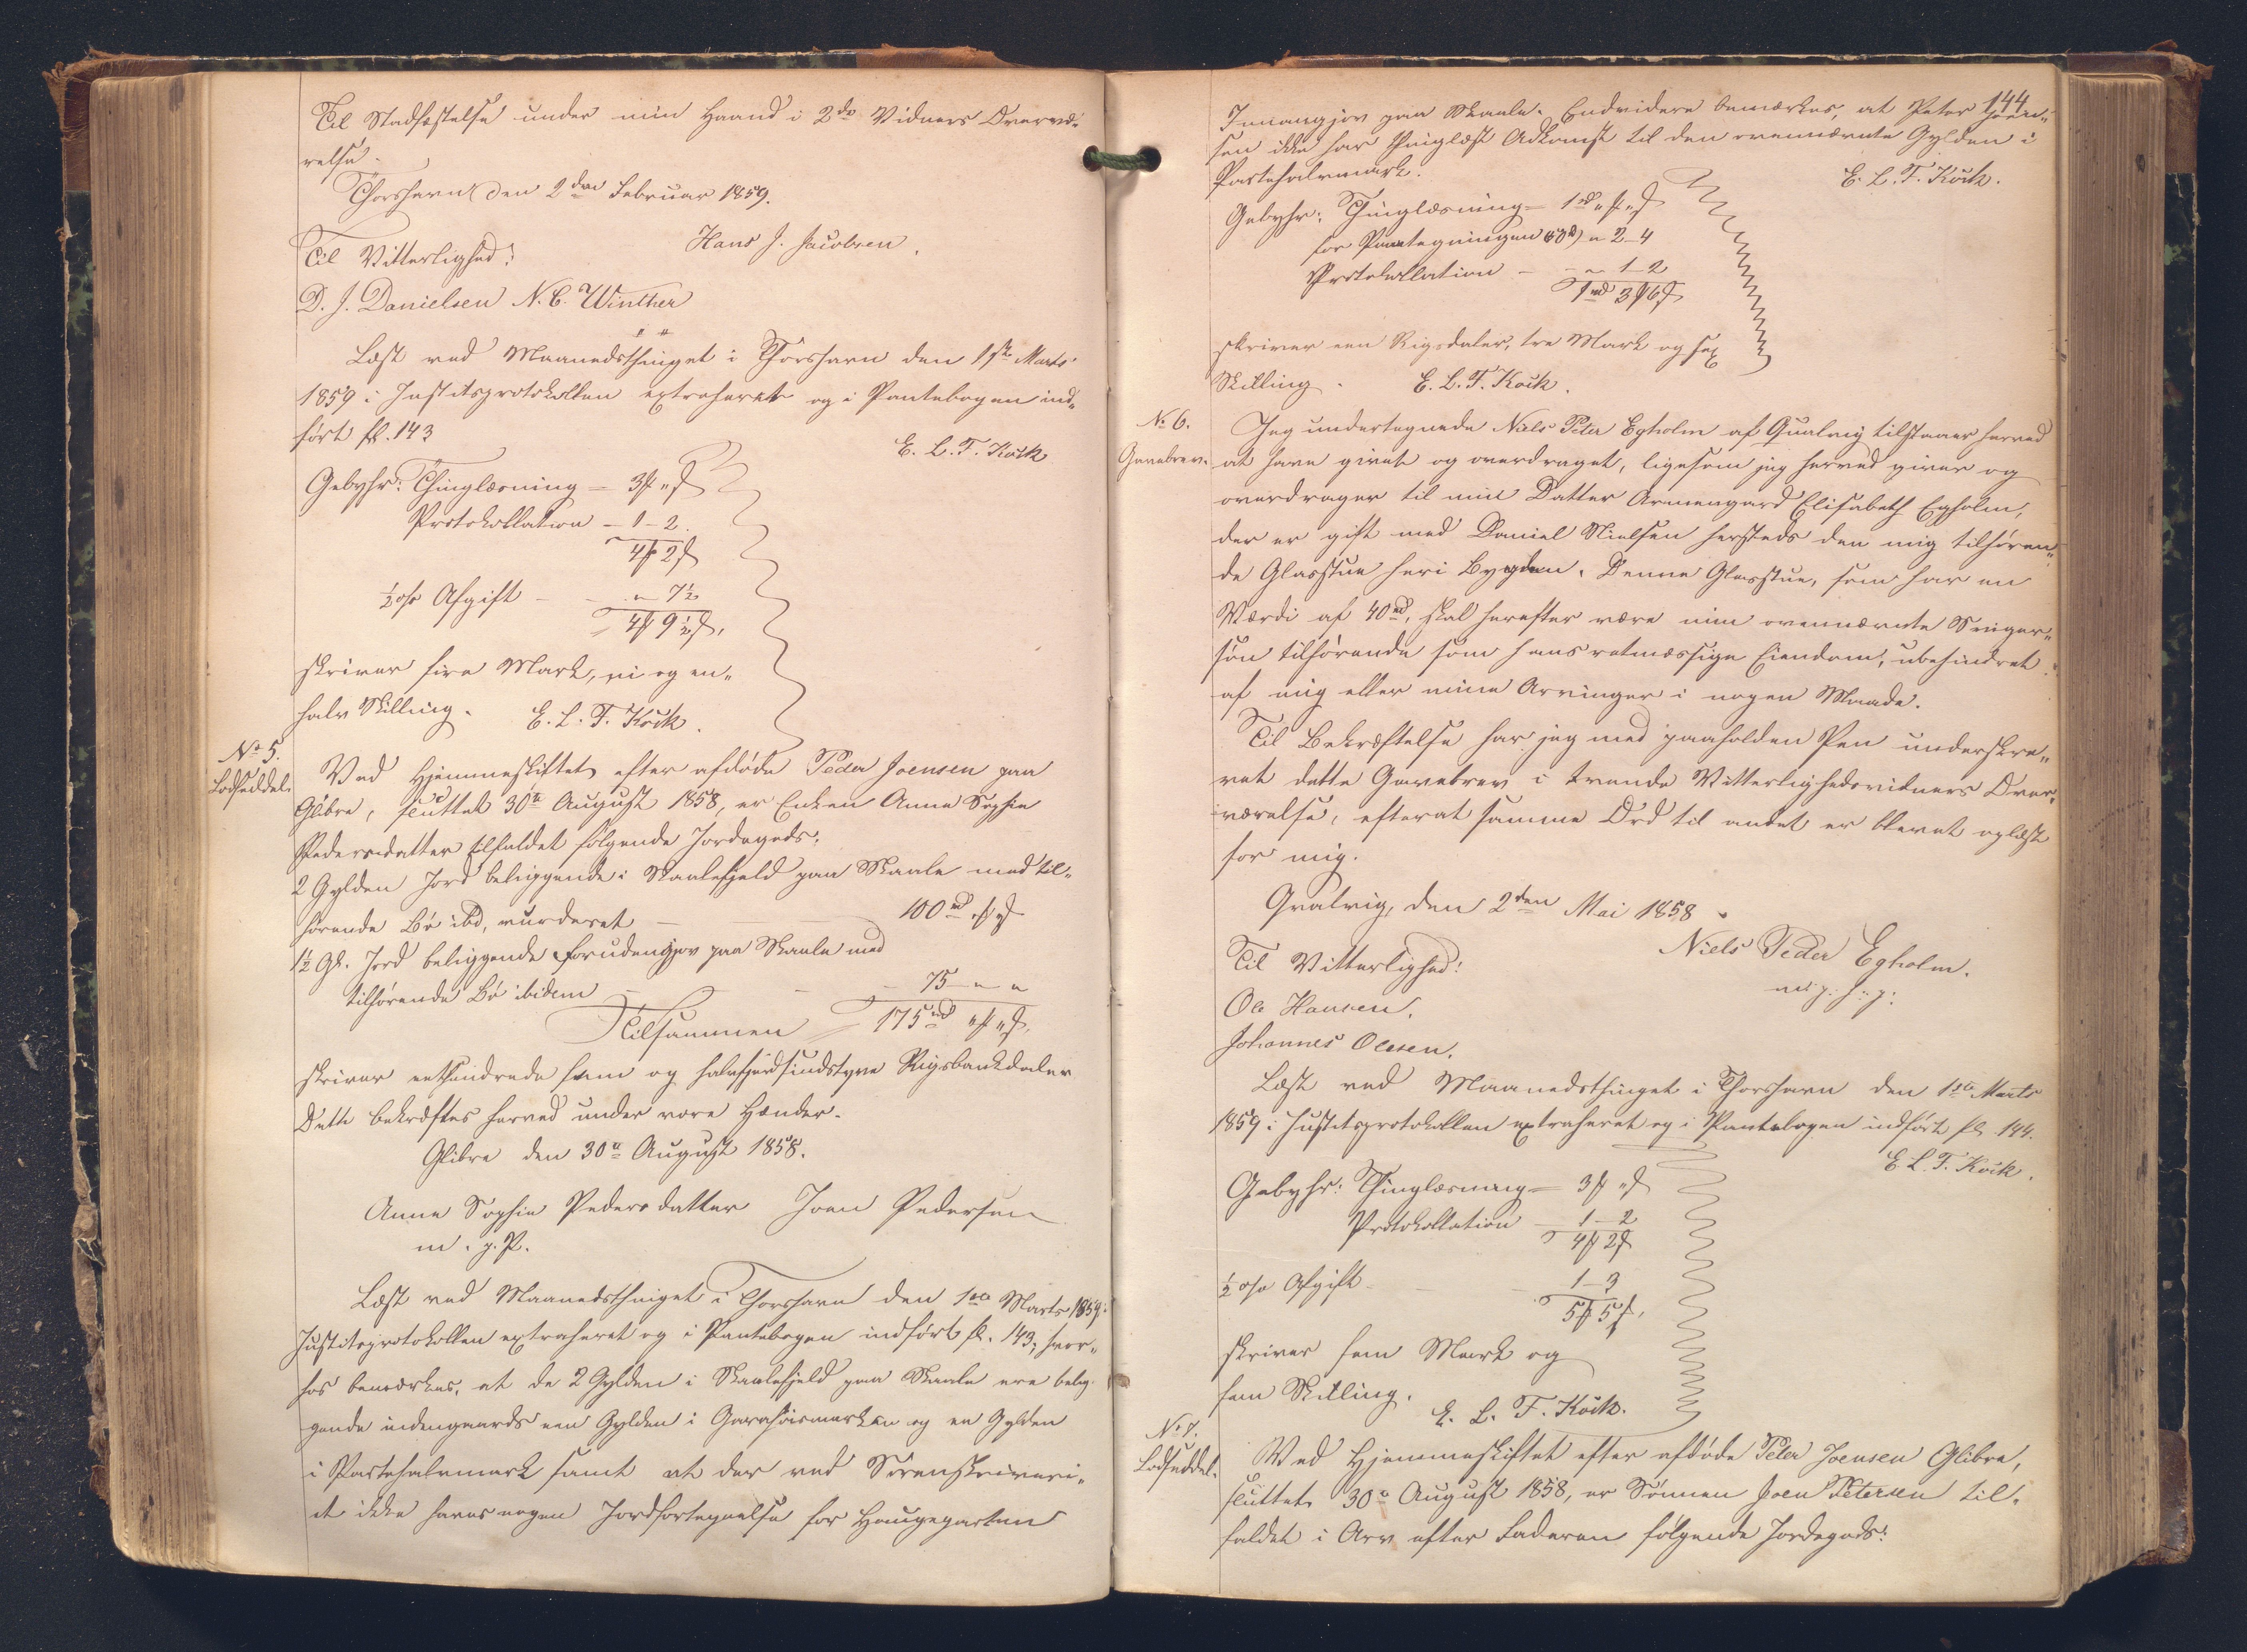 Til Stadfæstelse under min Haand i 2de Vidners Overvæ-
relse.
Thorshavn den 2den Februar 1859.
Hans J. Jacobsen.
Til Vitterlighed:
D. J. Danielsen N. C. Winther
Læst ved Maanedsthinget i Thorshavn den 1ste Marts
1859 i Justitsprotokollen extraheret og i Pantebogen ind-
ført fol. 143
E. L. T. Kock
Gebyhr: Thinglæsning - 3 # " ß
Protokollation - 1 - 2.
4 # 2 ß
½ % Afgift - - " 7½
4 # 9½ ß.
skriver fire Mark, ni og en
halv Skilling. E. L. T. Kock.
No 5.
Lodseddel.
Ved Hjemmeskiftet efter afdøde Peder Joensen paa
Glibre, sluttet 30te August 1858, er Enken Anna Sophie
Pedersdatter tilfaldet følgende Jordegods:
2 Gylden Jord beliggende i Skaalefjeld paa Skaale med til-
hørende Bø ibd, vurderet - 100 rd " # " ß
1½ Gl. Jord beliggende foruden paa Skaale med
tilhørende Bø ibidem - - - 75 - " "
Tilsammen 175 rd " # " ß.
skriver eethundrede fem og halvfjerdsindstyve Rigsbankdaler
Dette bekræftes herved under vore Hænder.
Glibre den 30te August 1858.
Anna Sophie Pedersdatter Joen Pedersen
m. p. P.
Læst ved Maanedsthinget i Thorshavn den 1ste Marts 1859 i
Justitsprotokollen extraheret og i Pantebogen indført fol. 143; hvor-
hos bemærkes, at de 2 Gylden i Skaalefjeld paa Skaale ere belig-
gende indengaards een Gylden i og en Gylden
i Partehalvmark samt at der ved Sorenskriveri-
et ikke haves nogen Jordfortegnelse for Haugeparten
144
paa Skaale. Endvidere bemærkes, at Peter Joen-
sen ikke har thinglæst Adkomst til den ovennævnte Gylden i
Partehalvmark.
E. L. T. Kock.
Gebyhr: Thinglæsning - 1 rd " # " ß
for Paategningen " 2 - 4
Protokollation - - " 1 - 2
1 rd 3 # 6 ß
skriver een Rigsdaler, tre Mark og sex
Skilling. E. L. T. Kock.
No 6.
Gavebrev.
Jeg undertegnede Niels Peter Egholm af Qualvig tilstaaer herved
at have givet og overdraget, ligesom jeg herved giver og
overdrager til min Datter Armengard Elisabeth Egholm,
der er gift med Daniel Nielsen hersteds den mig tilhøren-
de Glasstue heri Bygden. Denne Glasstue, som har en
Værdi af 40 rd, skal herefter være min ovennævnte Sviger-
søn tilhørende som hans retmæssige Eiendom, ubehindret
af mig eller mine Arvinger i nogen Maade.
Til Bekræftelse har jeg med paaholden Pen underskre-
vet dette Gavebrev i tvende Vitterlighedsvidners Over-
værelse, efterat samme Ord til andet er blevet oplæst
for mig.
Qvalvig, den 2den Mai 1858.
Niels Peder Egholm.
m. f. p.
Til Vitterlighed:
Ole Hansen.
Johannes Olesen.
Læst ved Maanedsthinget i Thorshavn den 1ste Marts
1859 i Justitsprotokollen extraheret og i Pantebogen indført fol. 144.
E. L. T. Kock.
Gebyhr: Thinglæsning - 3 # " ß
Protokollation - 1 - 2
4 # 2 ß
½ % Afgift - 1 - 3
5 # 5 ß.
skriver fem Mark og
fem Skilling.
E. L. T. Kock.
No 7.
Lodseddel.
Ved Hjemmeskiftet efter afdøde Peter Joensen Glibre,
sluttet 30te August 1858, er Sønnen Joen Petersen til-
faldet i Arv efter Faderen følgende Jordegods: